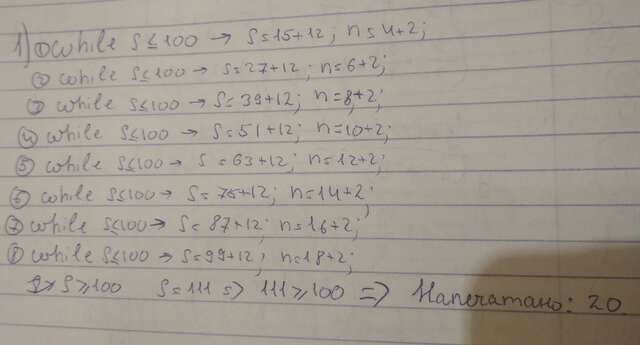 1) ① while S ≤ 100 → S = 15+12; n = 4+2;
② while S ≤ 100 → S = 27+12; n = 6+2;
③ while S ≤ 100 → S = 39+12; n = 8+2;
④ while S ≤ 100 → S = 51+12; n = 10+2;
⑤ while S ≤ 100 → S = 63+12; n = 12+2;
⑥ while S ≤ 100 → S = 75+12; n = 14+2;
⑦ while S ≤ 100 → S = 87+12; n = 16+2;
⑧ while S ≤ 100 → S = 99+12; n = 18+2;
S ≥ 100 S = 111 => 111 ≥ 100 => Напечатано: 20